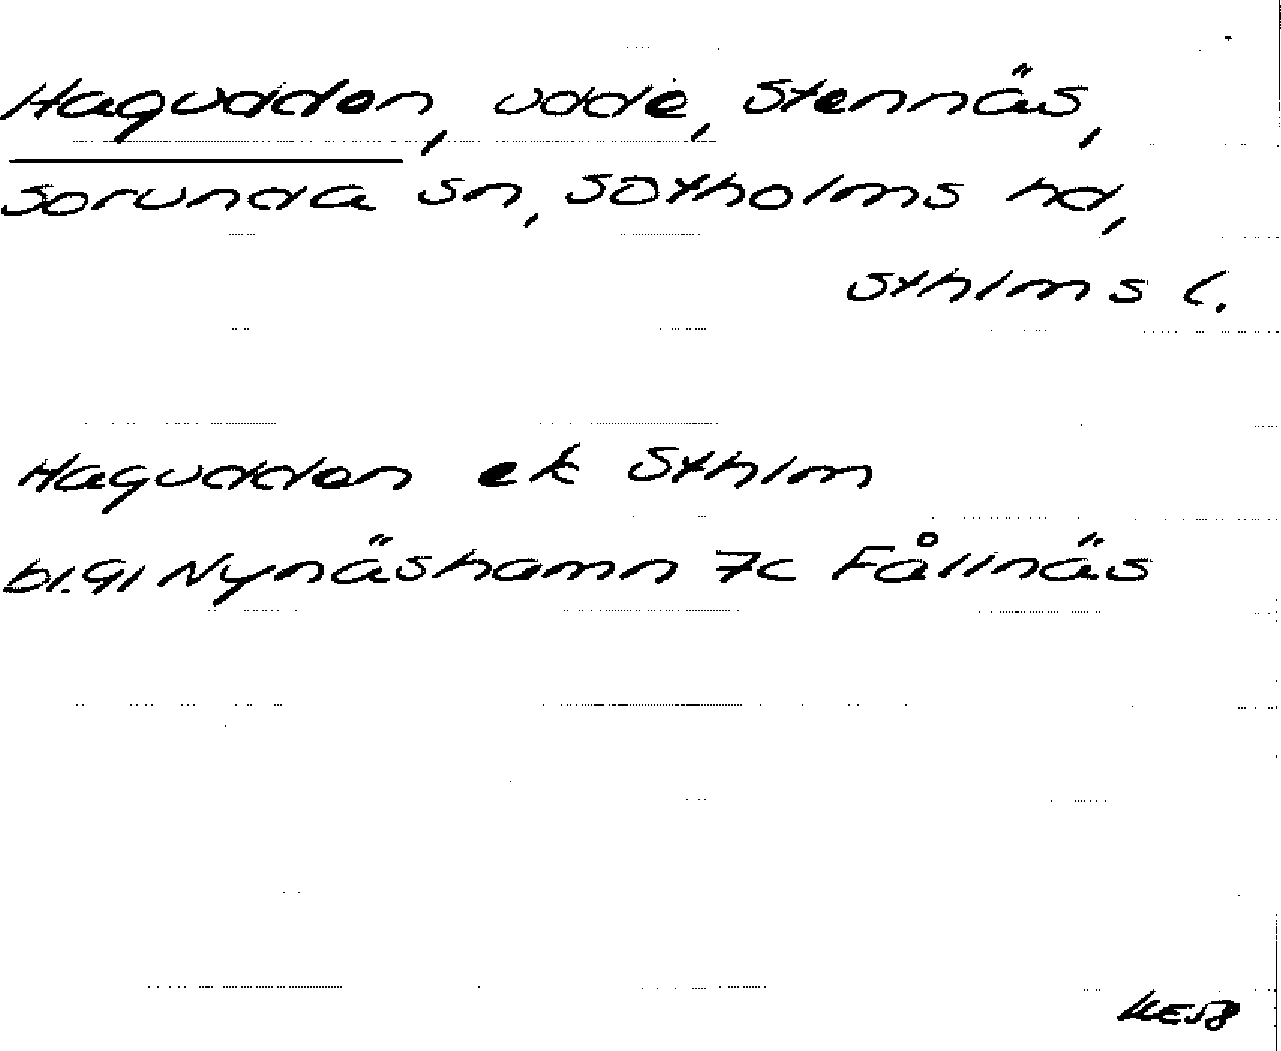 Hagudden, udde, Stennäs,
Sorunda sn, Sotholms hd,
Sthlms l.
Hagudden ek Sthlm
bl. 91 Nynäshamn 7c Fållnäs